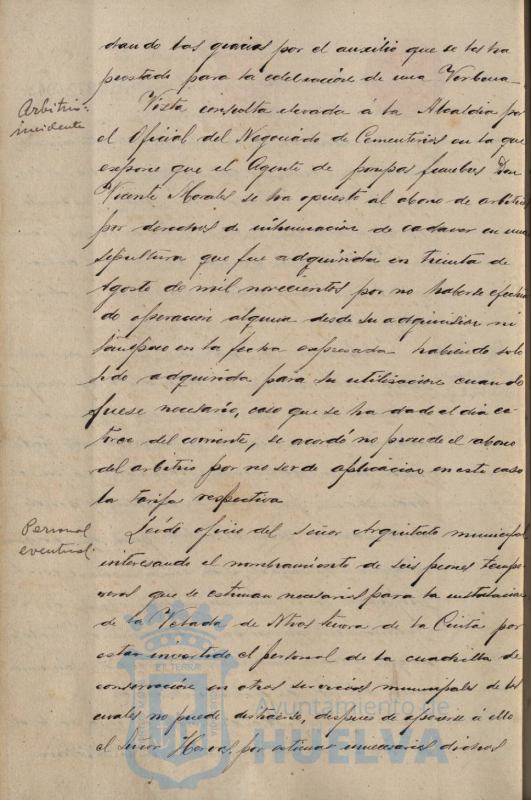 dando las gracias por el auxilio que se les ha
prestado para la celebración de una Verbena.
Arbitrio:
incidente
Vista consulta elevada á la Alcaldia por
el Oficial del Negociado de Cementerios en la que
expone que el Agente de pompas funebres Don
Vicente Morales se ha opuesto al abono de arbitrio
por derechos de inhumacion de cadaver en una
sepultura que fue adquirida en treinta de
Agosto de mil novecientos por no haberse efectua
do operacion alguna desde su adquisicion ni
tampoco en la fecha expresada habiendo solo
sido adquirida para su utilizacion cuando
fuese necesario, caso que se ha dado el dia ca
torce del corriente, se acordó no procede el abono
del arbitrio por no ser de aplicacion en este caso
la tarifa respectiva
Personal
eventual.
Leido oficio del señor Arquitecto municipal
interesando el nombramiento de seis peones tempo
reros que se estiman necesarios para la instalacion
de la Velada de Ntra Señora de la Cinta por
estar invertido el personal de la cuadrilla de
conservación en otros servicios municipales de los
cuales no puede distraerse, despues de oponerse á ello
el Señor por estimar innecesarios dichos
Ayuntamiento de
HUELVA